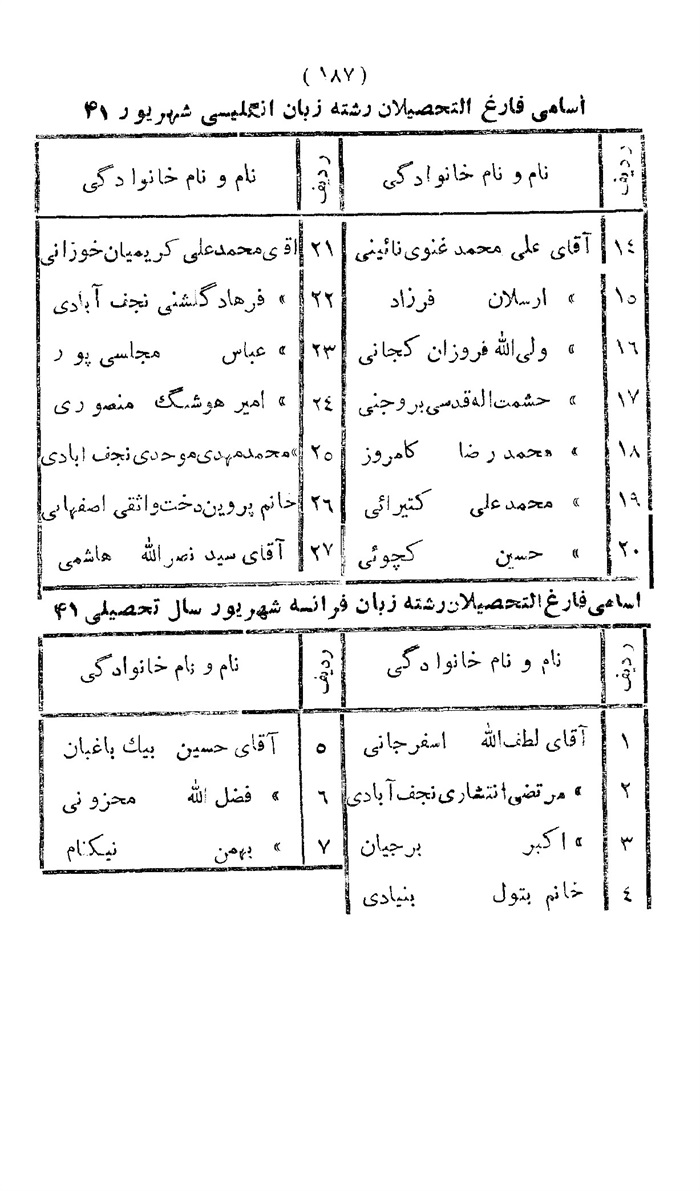 (١٨٧)
اسامی فارغ التحصیلان رشته زبان انگلیسی شهریور ۴۱
ردیف نام و نام خانوادگی ردیف نام و نام خانوادگی
١٤ آقای علی محمد غنوی نائینی ٢١ اقای محمدعلی کریمیان خوزانی
١٥ » ارسلان فرزاد ٢٢ » فرهاد گلشنی نجف آبادی
١٦ » ولی‌الله فروزان کجانی ٢٣ » عباس مجلسی پور
١٧ » حشمت اله قدسی بروجنی ٢٤ » امیر هوشنگ منصوری
١٨ » محمد رضا کامروز ٢٥ » محمدمهدی موحدی نجف ابادی
١٩ » محمدعلی کتیرائی ٢٦ خانم پروین‌دخت واثقی اصفهانی
٢٠ » حسین کچوئی ٢٧ آقای سید نصرالله هاشمی
اسامی فارغ التحصیلان رشته زبان فرانسه شهریور سال تحصیلی ۴۱
ردیف نام و نام خانوادگی ردیف نام و نام خانوادگی
١ آقای لطف‌الله اسفرجانی ٥ آقای حسین بیك باغبان
٢ » مرتضی انتشاری نجف آبادی ٦ » فضل الله محزونی
٣ » اکبر برجیان ٧ » بهمن نیکنام
٤ خانم بتول بنیادی